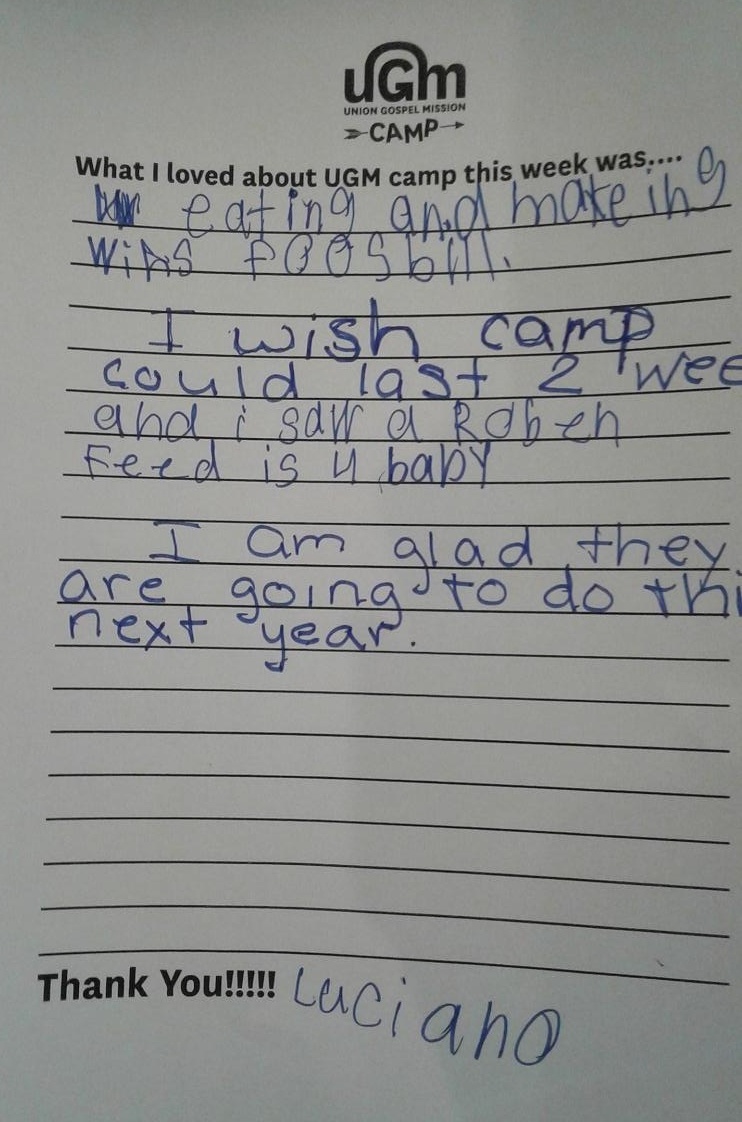 uGm
UNION GOSPEL MISSION
CAMP
What I loved about UGM camp this week was....
eating and makeing
wins poosbill.
I wish camp
could last 2 wee
and i saw a Roben
Feed is 4 baby
I am glad they
are going to do thi
next year.
Thank You!!!!! Luciano